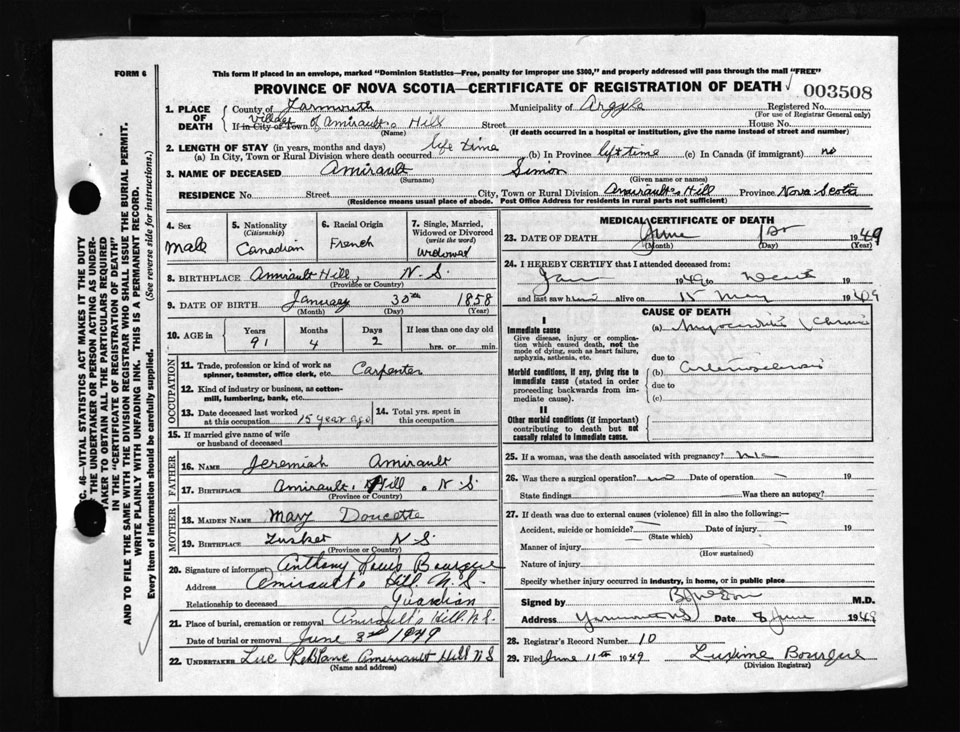 FORM 6
This form if placed in an envelope, marked "Dominion Statistics—Free, penalty for improper use $300," and properly addressed will pass through the mail "FREE"
PROVINCE OF NOVA SCOTIA—CERTIFICATE OF REGISTRATION OF DEATH
003508
1. PLACE OF DEATH
County of Yarmouth Municipality of Argyle Registered No.
(For use of Registrar General only)
Village
If in City or Town of Amirault's Hill Street House No.
(Name) (If death occurred in a hospital or institution, give the name instead of street and number)
2. LENGTH OF STAY (in years, months and days)
(a) In City, Town or Rural Division where death occurred life time (b) In Province lifetime (c) In Canada (if immigrant) no
3. NAME OF DECEASED Amirault Simon
(Surname) (Given name or names)
RESIDENCE No. Street City, Town or Rural Division Amirault's Hill Province Nova Scotia
(Residence means usual place of abode. Post Office Address for residents in rural parts not sufficient)
4. Sex
Male
5. Nationality
(Citizenship)
Canadian
6. Racial Origin
French
7. Single, Married, Widowed or Divorced
(write the word)
Widowed
8. BIRTHPLACE Amirault Hill, N.S.
(Province or Country)
9. DATE OF BIRTH January 30th 1858
(Month) (Day) (Year)
10. AGE in
Years Months Days If less than one day old
91 4 2 hrs. or min.
OCCUPATION
11. Trade, profession or kind of work as spinner, teamster, office clerk, etc. Carpenter
12. Kind of industry or business, as cotton-mill, lumbering, bank, etc.
13. Date deceased last worked at this occupation 15 year ago
14. Total yrs. spent in this occupation
15. If married give name of wife or husband of deceased
FATHER
16. NAME Jeremiah Amirault
17. BIRTHPLACE Amirault, Hill, N.S.
(Province or Country)
MOTHER
18. MAIDEN NAME Mary Doucette
19. BIRTHPLACE Tusket N.S.
(Province or Country)
20. Signature of informant Anthony Louis Bourque
Address Amirault's Hill N.S.
Relationship to deceased Guardian
21. Place of burial, cremation or removal Amirault's Hill N.S.
Date of burial or removal June 3rd 1949
22. UNDERTAKER Luc LeBlanc Amirault Hill N.S.
(Name and address)
MEDICAL CERTIFICATE OF DEATH
23. DATE OF DEATH June 1st 1949
(Month) (Day) (Year)
24. I HEREBY CERTIFY that I attended deceased from:
Jan 1949 to 19
and last saw him alive on 15 May 1949
CAUSE OF DEATH
I
Immediate cause
Give disease, injury or complication which caused death, not the mode of dying, such as heart failure, asphyxia, asthenia, etc.
(a) Myocarditis Chronic
due to
Morbid conditions, if any, giving rise to immediate cause (stated in order proceeding backwards from immediate cause).
(b)
due to
(c)
II
Other morbid conditions (if important) contributing to death but not causally related to immediate cause.
25. If a woman, was the death associated with pregnancy?
26. Was there a surgical operation? no Date of operation 19
State findings Was there an autopsy?
27. If death was due to external causes (violence) fill in also the following:—
Accident, suicide or homicide? Date of injury 19
(State which)
Manner of injury
(How sustained)
Nature of injury
Specify whether injury occurred in industry, in home, or in public place
Signed by M.D.
Address Yarmouth NS Date 8 June 1949
28. Registrar's Record Number 10
29. Filed June 11th 1949 Bourque
(Division Registrar)
SEC. 46—VITAL STATISTICS ACT MAKES IT THE DUTY
OF THE UNDERTAKER OR PERSON ACTING AS UNDERTAKER TO OBTAIN ALL THE PARTICULARS REQUIRED
IN THE "CERTIFICATE OF REGISTRATION OF DEATH"
AND TO FILE THE SAME WITH THE DIVISION REGISTRAR WHO SHALL ISSUE THE BURIAL PERMIT.
WRITE PLAINLY WITH UNFADING INK. THIS IS A PERMANENT RECORD.
Every item of information should be carefully supplied. (See reverse side for instructions.)